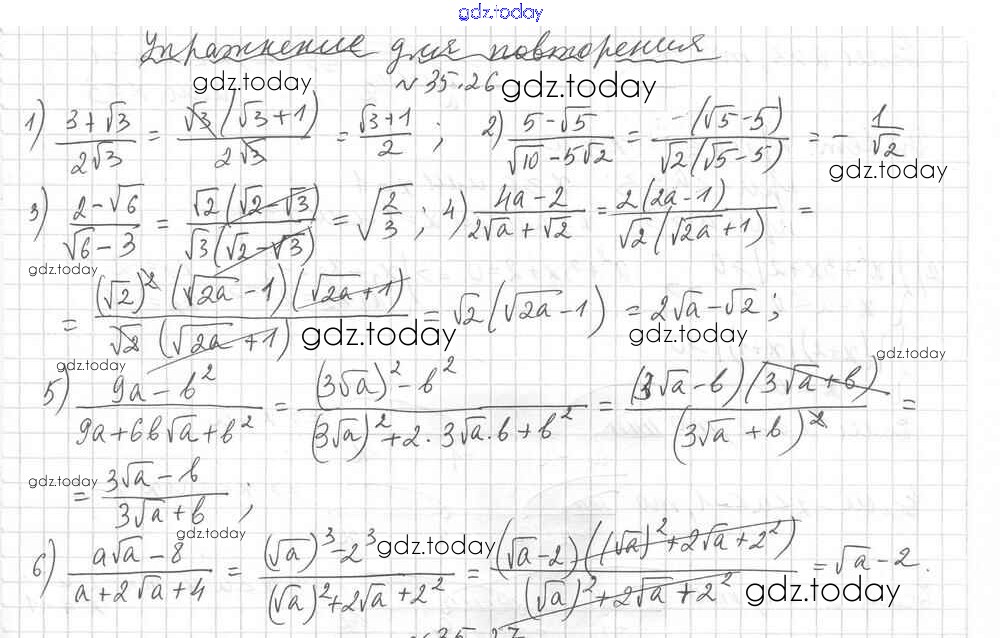 gdz.today
Упражнение для повторения
gdz.today
№ 35.26 gdz.today
1) (3+√3)/(2√3) = (√3(√3+1))/(2√3) = (√3+1)/2 ; 2) (5-√5)/(√10-5√2) = (-(√5-5))/(√2(√5-5)) = -1/√2
gdz.today
3) (2-√6)/(√6-3) = (√2(√2-√3))/(√3(√2-√3)) = √(2/3) ; 4) (4a-2)/(2√a+√2) = (2(2a-1))/(√2(√2a+1)) =
gdz.today
= ((√2)²(√2a-1)(√2a+1))/(√2(√2a+1)) = √2(√2a-1) = 2√a-√2 ;
gdz.today gdz.today
gdz.today gdz.today
5) (9a-b²)/(9a+6b√a+b²) = ((3√a)²-b²)/((3√a)²+2·3√a·b+b²) = ((3√a-b)(3√a+b))/((3√a+b)²) =
gdz.today
= (3√a-b)/(3√a+b) ;
gdz.today gdz.today
6) (a√a-8)/(a+2√a+4) = ((√a)³-2³)/((√a)²+2√a+2²) = ((√a-2)((√a)²+2√a+2²))/((√a)²+2√a+2²) = √a-2.
gdz.today
№35.27